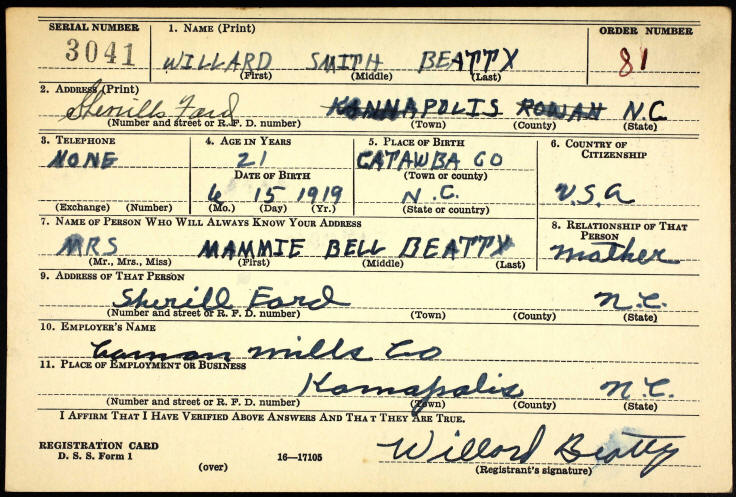 SERIAL NUMBER 1. NAME (Print) ORDER NUMBER
3041 WILLARD SMITH BEATTY 81
(First) (Middle) (Last)
2. ADDRESS (Print)
Sherrills Ford KANNAPOLIS ROWAN N.C.
(Number and street or R. F. D. number) (Town) (County) (State)
3. TELEPHONE 4. AGE IN YEARS 5. PLACE OF BIRTH 6. COUNTRY OF CITIZENSHIP
NONE 21 CATAWBA CO
DATE OF BIRTH (Town or county)
6 15 1919 N.C. U.S.A
(Exchange) (Number) (Mo.) (Day) (Yr.) (State or country)
7. NAME OF PERSON WHO WILL ALWAYS KNOW YOUR ADDRESS 8. RELATIONSHIP OF THAT PERSON
MRS MAMMIE BELL BEATTY Mother
(Mr., Mrs., Miss) (First) (Middle) (Last)
9. ADDRESS OF THAT PERSON
Sherill Ford N.C.
(Number and street or R. F. D. number) (Town) (County) (State)
10. EMPLOYER'S NAME
Cannon Mills Co
11. PLACE OF EMPLOYMENT OR BUSINESS
Kannapolis N.C.
(Number and street or R. F. D. number) (Town) (County) (State)
I AFFIRM THAT I HAVE VERIFIED ABOVE ANSWERS AND THAT THEY ARE TRUE.
REGISTRATION CARD
D. S. S. Form 1 (over) 16—17105 Willard Beatty
(Registrant's signature)